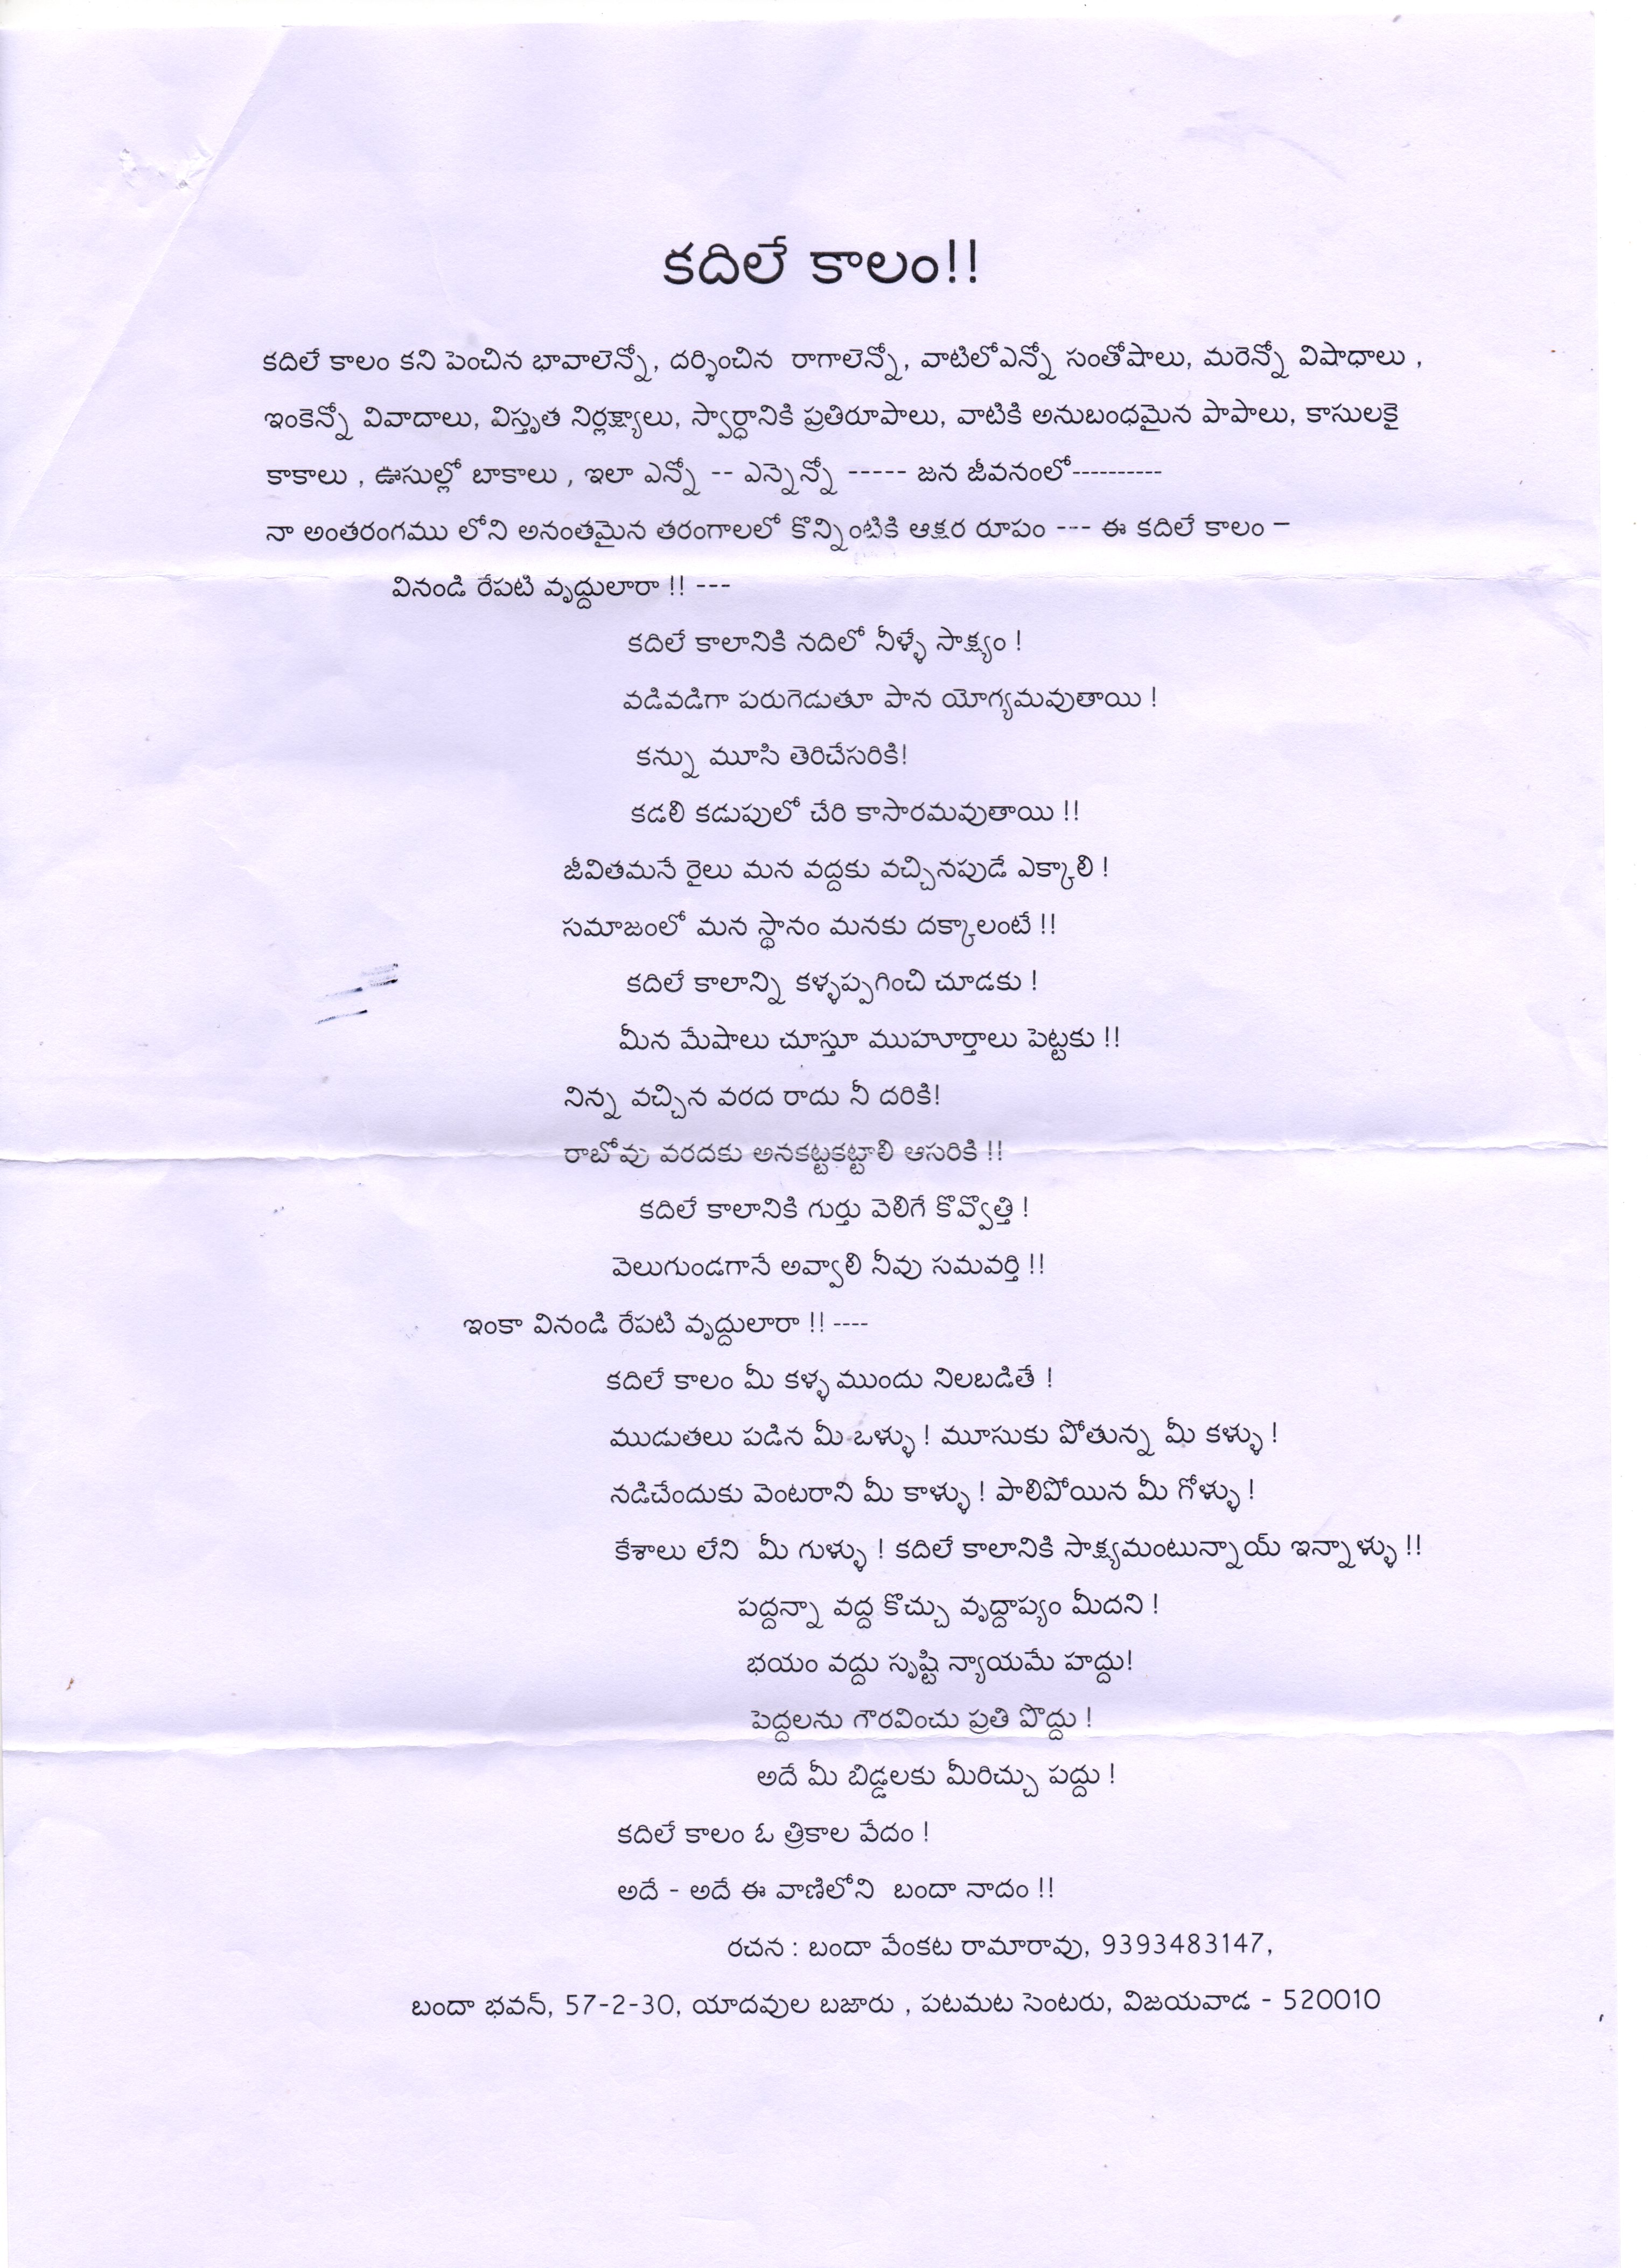 కదిలే కాలం!!
కదిలే కాలం కని పెంచిన భావాలెన్నో, దర్శించిన రాగాలెన్నో, వాటిలోఎన్నో సంతోషాలు, మరెన్నో విషాధాలు ,
ఇంకెన్నో వివాదాలు, విస్తృత నిర్లక్ష్యాలు, స్వార్ధానికి ప్రతిరూపాలు, వాటికి అనుబంధమైన పాపాలు, కాసులకై
కాకాలు , ఊసుల్లో బాకాలు , ఇలా ఎన్నో -- ఎన్నెన్నో ----- జన జీవనంలో----------
నా అంతరంగము లోని అనంతమైన తరంగాలలో కొన్నింటికి ఆక్షర రూపం --- ఈ కదిలే కాలం –
వినండి రేపటి వృద్దులారా !! ---
కదిలే కాలానికి నదిలో నీళ్ళే సాక్ష్యం !
వడివడిగా పరుగెడుతూ పాన యోగ్యమవుతాయి !
కన్ను మూసి తెరిచేసరికి!
కడలి కడుపులో చేరి కాసారమవుతాయి !!
జీవితమనే రైలు మన వద్దకు వచ్చినపుడే ఎక్కాలి !
సమాజంలో మన స్థానం మనకు దక్కాలంటే !!
కదిలే కాలాన్ని కళ్ళప్పగించి చూడకు !
మీన మేషాలు చూస్తూ ముహూర్తాలు పెట్టకు !!
నిన్న వచ్చిన వరద రాదు నీ దరికి!
రాబోవు వరదకు అనకట్టకట్టాలి ఆసరికి !!
కదిలే కాలానికి గుర్తు వెలిగే కొవ్వొత్తి !
వెలుగుండగానే అవ్వాలి నీవు సమవర్తి !!
ఇంకా వినండి రేపటి వృద్దులారా !! ----
కదిలే కాలం మీ కళ్ళ ముందు నిలబడితే !
ముడుతలు పడిన మీ ఒళ్ళు ! మూసుకు పోతున్న మీ కళ్ళు !
నడిచేందుకు వెంటరాని మీ కాళ్ళు ! పాలిపోయిన మీ గోళ్ళు !
కేశాలు లేని మీ గుళ్ళు ! కదిలే కాలానికి సాక్ష్యమంటున్నాయ్ ఇన్నాళ్ళు !!
పద్దన్నా వద్ద కొచ్చు వృద్దాప్యం మీదని !
భయం వద్దు సృష్టి న్యాయమే హద్దు!
పెద్దలను గౌరవించు ప్రతి పొద్దు !
అదే మీ బిడ్డలకు మీరిచ్చు పద్దు !
కదిలే కాలం ఓ త్రికాల వేదం !
అదే - అదే ఈ వాణిలోని బందా నాదం !!
రచన : బందా వేంకట రామారావు, 9393483147,
బందా భవన్, 57-2-30, యాదవుల బజారు , పటమట సెంటరు, విజయవాడ - 520010